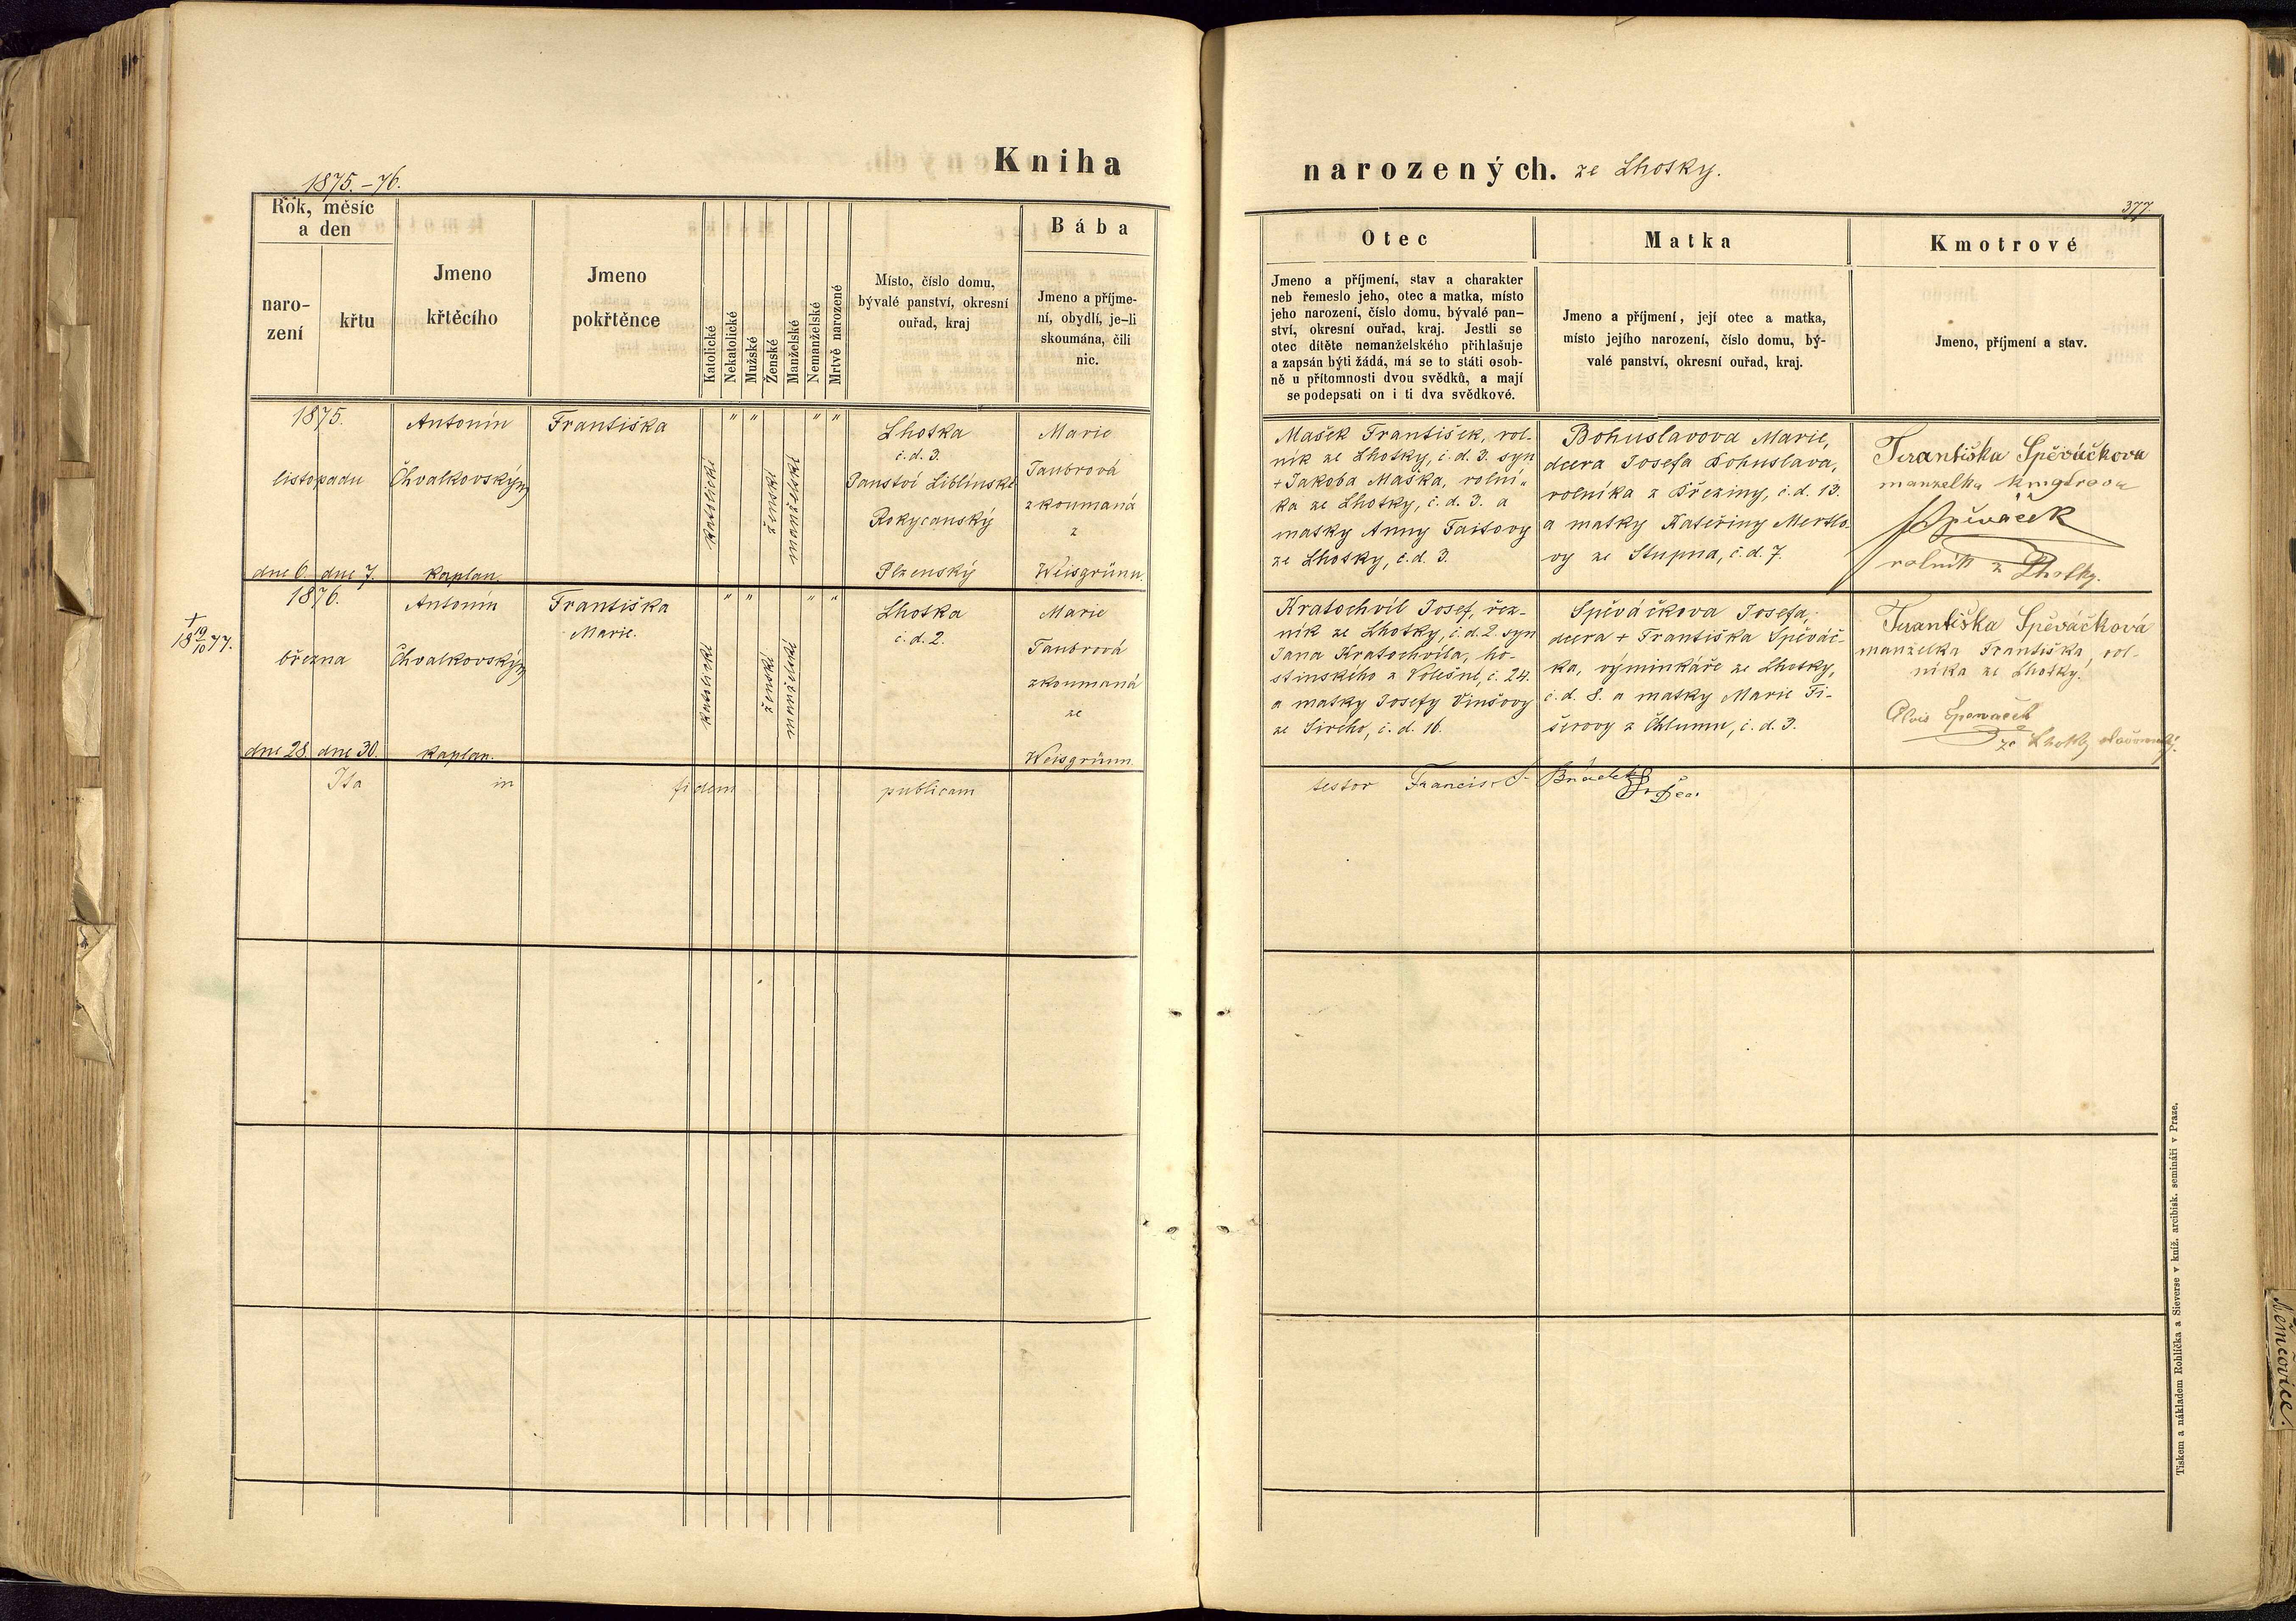 Kniha
1875.-76.
Rok, měsíc
a den
naro-
zení
křtu
Jmeno
křtěcího
Jmeno
pokřtěnce
Katolické
Nekatolické
Mužské
Ženské
Manželské
Nemanželské
Mrtvě narozené
Místo, číslo domu,
bývalé panství, okresní
ouřad, kraj
Bába
Jmeno a příjme-
ní, obydlí, je-li
skoumána, čili
nic.
1875.
listopadu
dne 6. dne 7.
Antonín
Chvalkovský
kaplan.
Františka
katolické
" "
ženské
manželské
" "
Lhotka
č. d. 3.
Panství Liblínské
Rokycanský
Plzenský
Marie
Taubrová
zkoumaná
z
Weisgrünu.
†
18 19/10 77.
1876.
března
dne 28. dne 30.
Antonín
Chvalkovský
kaplan.
Františka
Marie.
katolické
" "
ženské
manželské
" "
Lhotka
č. d. 2.
Marie
Taubrová
zkoumaná
ze
Weisgrünu
Ita in fidem publicam
narozených. ze Lhotky.
377.
Otec
Jmeno a příjmení, stav a charakter
neb řemeslo jeho, otec a matka, místo
jeho narození, číslo domu, bývalé pan-
ství, okresní ouřad, kraj. Jestli se
otec dítěte nemanželského přihlašuje
a zapsán býti žádá, má se to státi osob-
ně u přítomnosti dvou svědků, a mají
se podepsati on i ti dva svědkové.
Matka
Jmeno a příjmení, její otec a matka,
místo jejího narození, číslo domu, bý-
valé panství, okresní ouřad, kraj.
Kmotrové
Jmeno, příjmení a stav.
Mašek František, rol-
ník ze Lhotky, č. d. 3. syn
+ Jakoba Maška, rolní-
ka ze Lhotky, č. d. 3. a
matky Anny Taitovy
ze Lhotky, č. d. 3.
Bohuslavova Marie,
dcera Josefa Bohuslava,
rolníka z Březiny, č. d. 13.
a matky Kateřiny Mertlo-
vy ze Stupna, č. d. 7.
Františka Spěváčkova
manzelka kmotrova
Spěváček
rolník z Lhotky.
Kratochvíl Josef, řez-
ník ze Lhotky, č. d. 2. syn
Jana Kratochvíla, ho-
stinského z Volešné, č. 24.
a matky Josefy Vinšovy
ze Sirého, č. d. 16.
Spěváčkova Josefa,
dcera + Františka Spěváč-
ka, výminkáře ze Lhotky,
č. d. 8. a matky Marie Fi-
šerovy z Chlumu, č. d. 3.
Františka Spěváčková
manželka Františka, rol-
níka ze Lhotky.
Alois Spewaček
ze Lhotky
testor Francis. S.
Tiskem a nákladem Rohlíčka a Sieverse v kníž. arcibisk. semináři v Praze.
Němčovice.